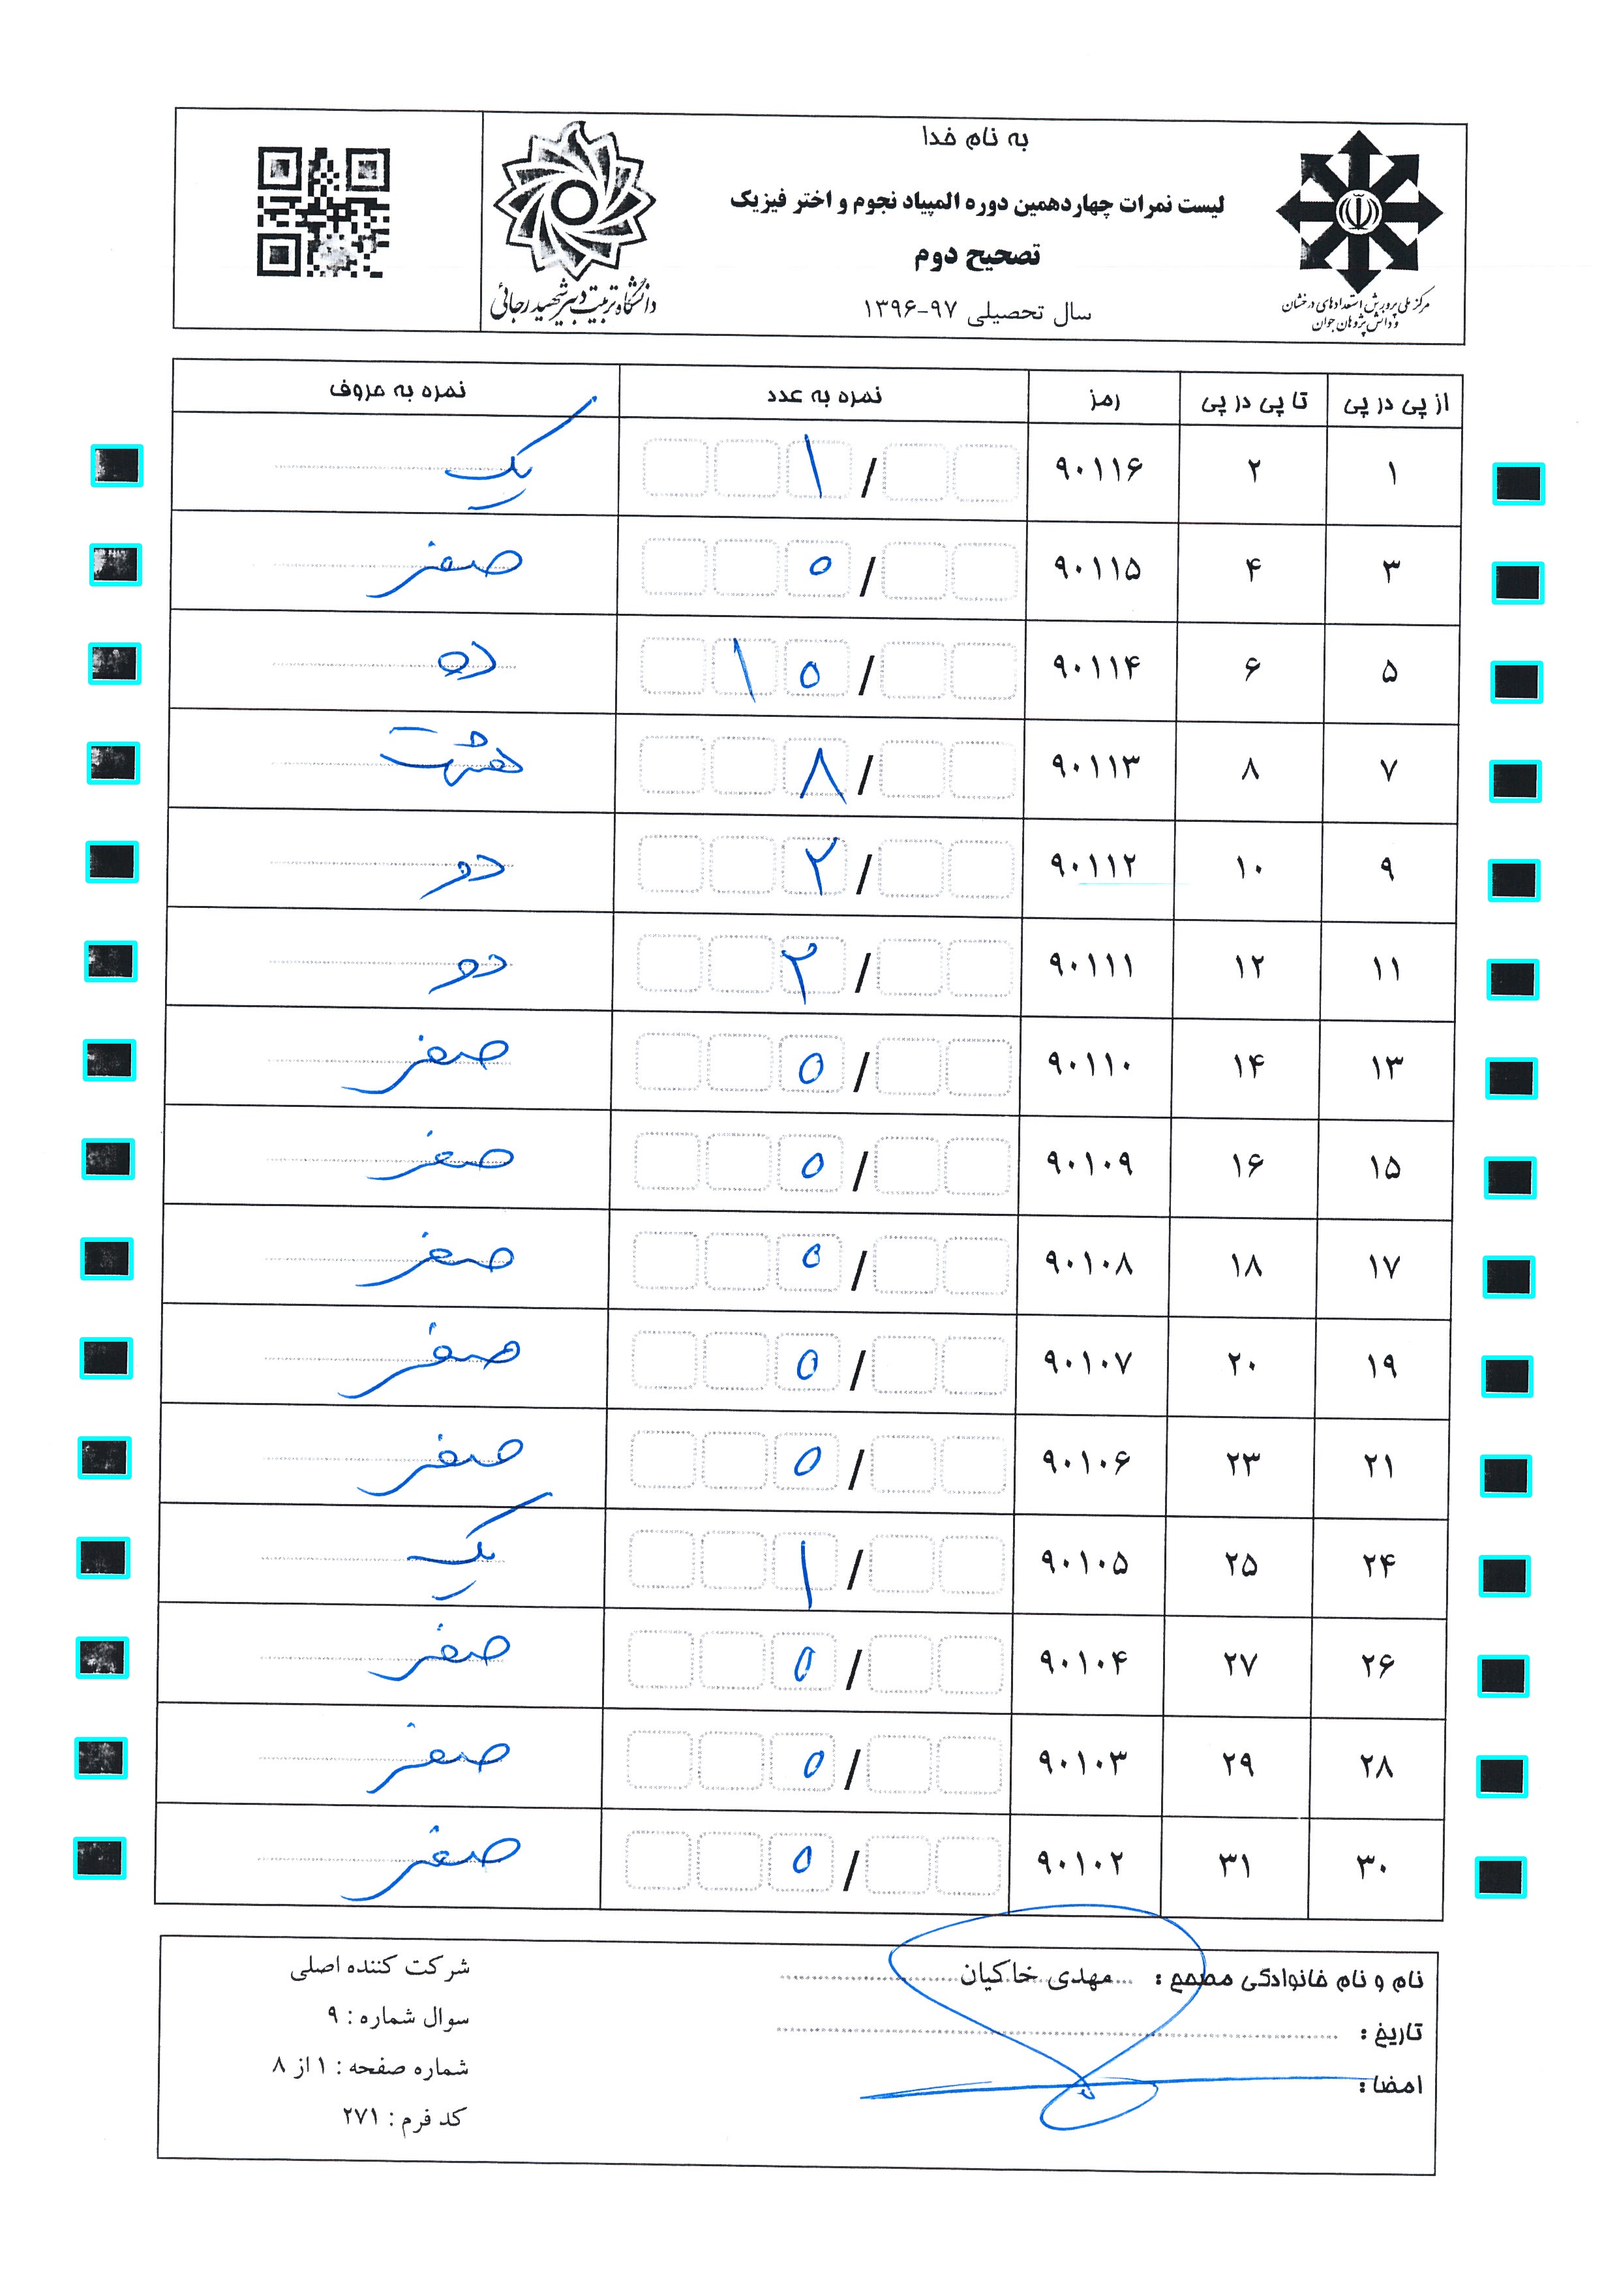 به نام خدا
لیست نمرات چهاردهمین دوره المپیاد نجوم و اختر فیزیک
تصحیح دوم
سال تحصیلی ۹۷-۱۳۹۶
مرکز ملی پرورش استعدادهای درخشان
و دانش پژوهان جوان
دانشگاه تربیت دبیر شهید رجائی
از پی در پی تا پی در پی رمز نمره به عدد نمره به حروف
۱ ۲ ۹۰۱۱۶ ۱/ یک
۳ ۴ ۹۰۱۱۵ ۰/ صفر
۵ ۶ ۹۰۱۱۴ ۱۰/ ده
۷ ۸ ۹۰۱۱۳ ۸/ هشت
۹ ۱۰ ۹۰۱۱۲ ۲/ دو
۱۱ ۱۲ ۹۰۱۱۱ ۲/ دو
۱۳ ۱۴ ۹۰۱۱۰ ۰/ صفر
۱۵ ۱۶ ۹۰۱۰۹ ۰/ صفر
۱۷ ۱۸ ۹۰۱۰۸ ۰/ صفر
۱۹ ۲۰ ۹۰۱۰۷ ۰/ صفر
۲۱ ۲۳ ۹۰۱۰۶ ۰/ صفر
۲۴ ۲۵ ۹۰۱۰۵ ۱/ یک
۲۶ ۲۷ ۹۰۱۰۴ ۰/ صفر
۲۸ ۲۹ ۹۰۱۰۳ ۰/ صفر
۳۰ ۳۱ ۹۰۱۰۲ ۰/ صفر
نام و نام خانوادگی مصحح : مهدی خاکیان
تاریخ :
امضا :
شرکت کننده اصلی
سوال شماره : ۹
شماره صفحه : ۱ از ۸
کد فرم : ۲۷۱